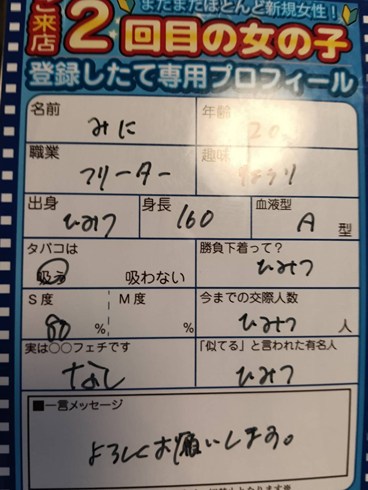 ご来店
まだまだほとんど新規女性!
2回目の女の子
登録したて専用プロフィール
名前
みに
年齢
20
職業
フリーター
趣味
りょうり
出身
ひみつ
身長
160
血液型
A 型
タバコは
吸う 吸わない
勝負下着って?
ひみつ
S度
80 %
M度
%
今までの交際人数
ひみつ 人
実は○○フェチです
なし
「似てる」と言われた有名人
ひみつ
■一言メッセージ
よろしくお願いします。